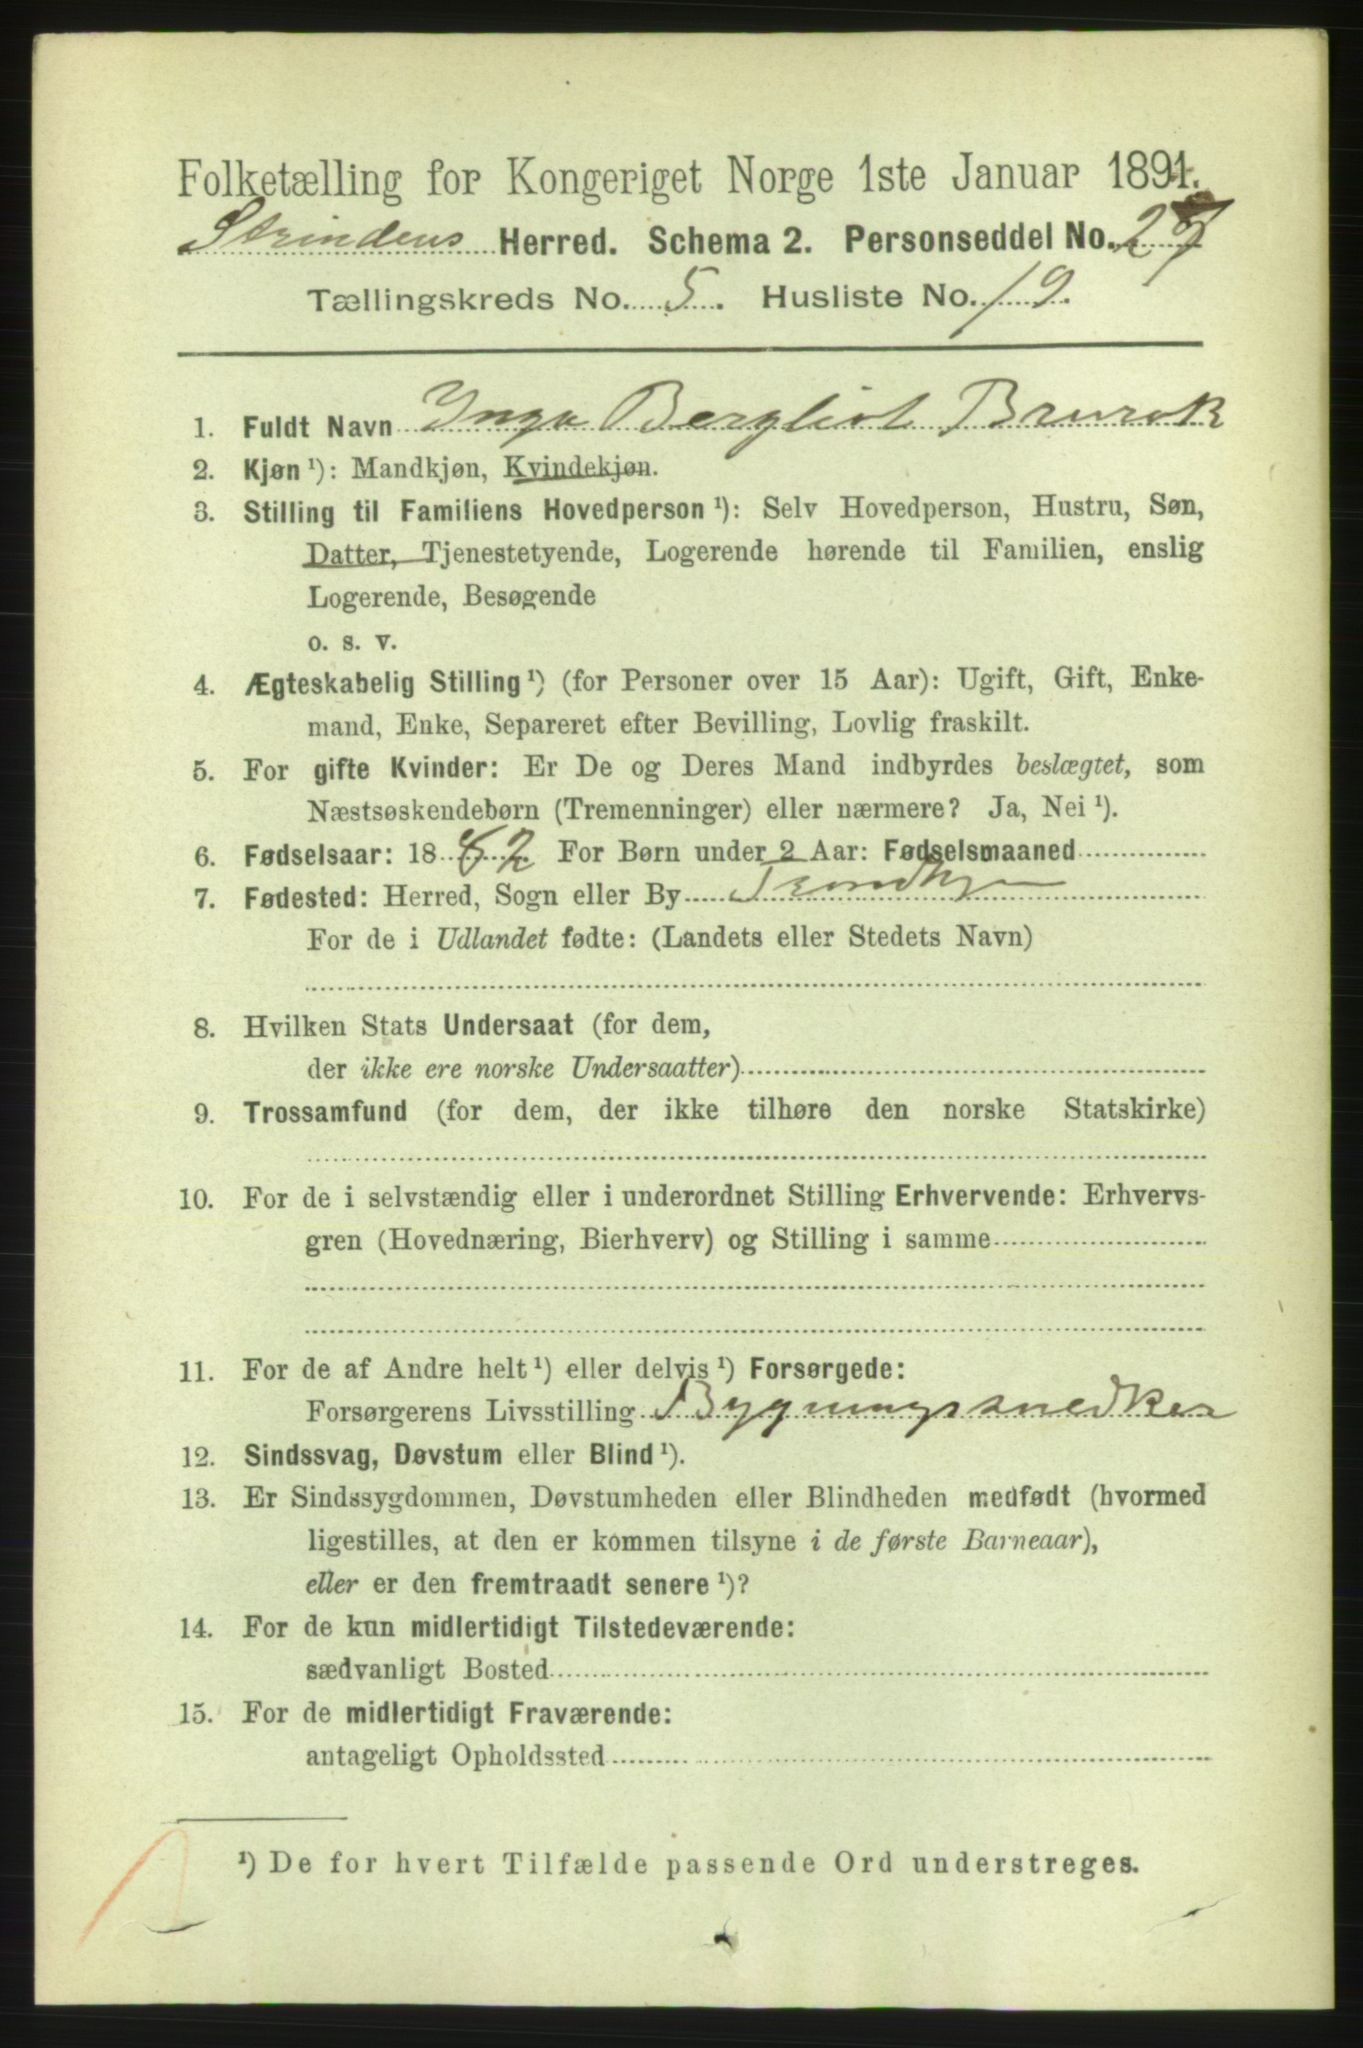 Folketælling for Kongeriget Norge 1ste Januar 1891.
Strindens Herred. Schema 2. Personseddel No. 27
Tællingskreds No. 5. Husliste No. 19.
1. Fuldt Navn Inga Bergliot Brurok
2. Kjøn ¹): Mandkjøn, Kvindekjøn.
3. Stilling til Familiens Hovedperson ¹): Selv Hovedperson, Hustru, Søn,
Datter, Tjenestetyende, Logerende hørende til Familien, enslig
Logerende, Besøgende
o. s. v.
4. Ægteskabelig Stilling ¹) (for Personer over 15 Aar): Ugift, Gift, Enke-
mand, Enke, Separeret efter Bevilling, Lovlig fraskilt.
5. For gifte Kvinder: Er De og Deres Mand indbyrdes beslægtet, som
Næstsøskendebørn (Tremenninger) eller nærmere? Ja, Nei ¹).
6. Fødselsaar: 1882 For Børn under 2 Aar: Fødselsmaaned
7. Fødested: Herred, Sogn eller By Trondhjem
For de i Udlandet fødte: (Landets eller Stedets Navn)
8. Hvilken Stats Undersaat (for dem,
der ikke ere norske Undersaatter)
9. Trossamfund (for dem, der ikke tilhøre den norske Statskirke)
10. For de i selvstændig eller i underordnet Stilling Erhvervende: Erhvervs-
gren (Hovednæring, Bierhverv) og Stilling i samme
11. For de af Andre helt ¹) eller delvis ¹) Forsørgede:
Forsørgerens Livsstilling Bygningssnedker
12. Sindssvag, Døvstum eller Blind ¹).
13. Er Sindssygdommen, Døvstumheden eller Blindheden medfødt (hvormed
ligestilles, at den er kommen tilsyne i de første Barneaar),
eller er den fremtraadt senere ¹)?
14. For de kun midlertidigt Tilstedeværende:
sædvanligt Bosted
15. For de midlertidigt Fraværende:
antageligt Opholdssted
¹) De for hvert Tilfælde passende Ord understreges.